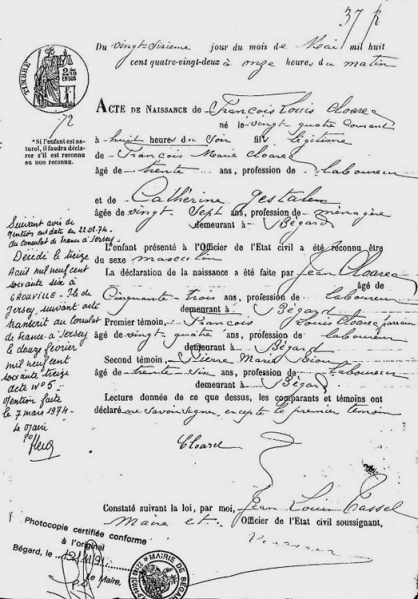 37
Du vingt-sixième jour du mois de Mai mil huit
cent quatre-vingt-deux à onze heures du matin
TIMBRE
72
ACTE DE NAISSANCE de François Louis Cloarec
né le vingt quatre courant
à huit heures du soir fils légitime
de François Marie Cloarec
âgé de trente ans, profession de laboureur
et de Catherine
âgée de vingt sept ans, profession de ménagère
demeurant à Bégard
L'enfant présenté à l'Officier de l'Etat civil a été reconnu être
du sexe masculin
La déclaration de la naissance a été faite par Jean Cloarec
âgé de
Cinquante trois ans, profession de laboureur
demeurant à Bégard
Premier témoin, François Louis Cloarec
âgé de vingt quatre ans, profession de laboureur
demeurant à Bégard
Second témoin, Pierre Marie
âgé de trente six ans, profession de laboureur
à Bégard
Lecture donnée de ce que dessus, les comparants et témoins ont
déclaré savoir signer, excepté le premier témoin
Cloarec
Constaté suivant la loi, par moi, Jean Louis Tassel
Maire et Officier de l'Etat civil soussigné,
*Si l'enfant est na-
turel, il faudra déclarer
s'il est reconnu
ou non reconnu.
Suivant avis de
mention en date du 22.01.74.
du consulat de France à Jersey
Décédé le treize
Aout mil neuf cent
soixante six à
GROUVILLE - Ile de
Jersey, suivant acte
transcrit au Consulat
de France à Jersey
le douze février
mil neuf cent
soixante treize
acte n° 5.
Mention faite
le 7 mars 1974.
le Maire
Photocopie certifiée conforme
à l'original
Bégard, le
le Maire,
MAIRIE DE BÉGARD